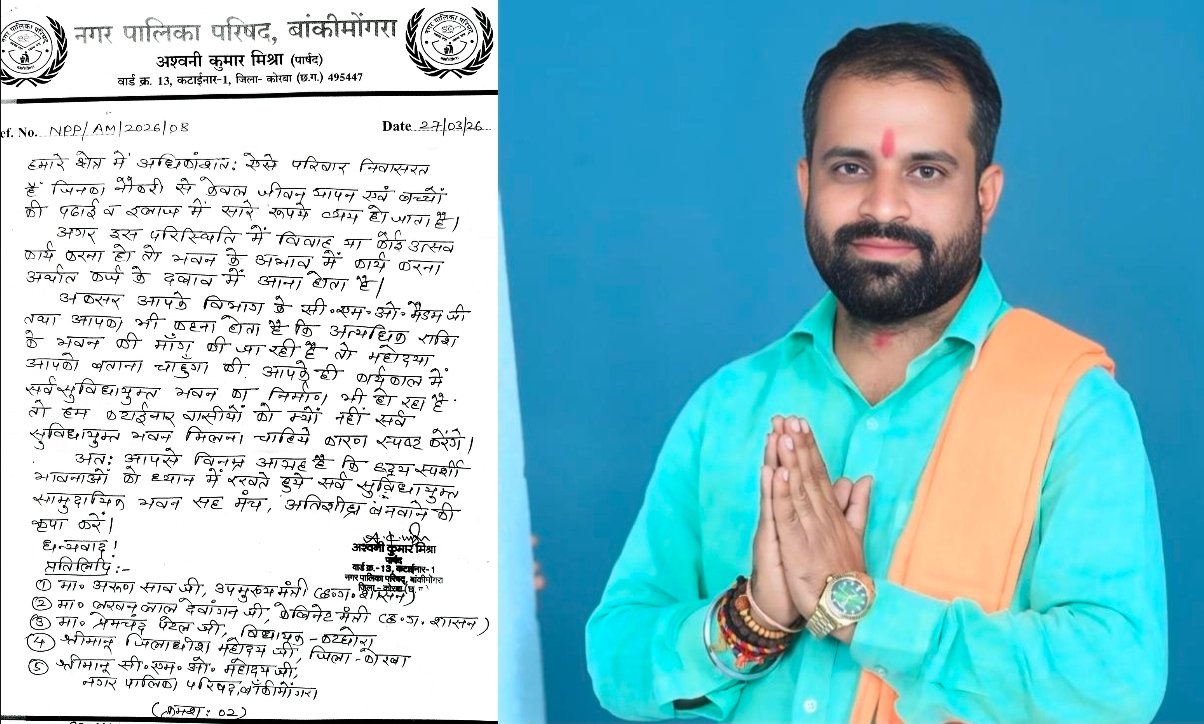 नगर पालिका परिषद, बांकीमोंगरा
अश्वनी कुमार मिश्रा (पार्षद)
वार्ड क्र. 13, कटाईनार-1, जिला- कोरबा (छ.ग.) 495447
ef. No. NPP/AM/2026/08 Date 27/03/26
हमारे क्षेत्र में अधिकांशत: ऐसे परिवार निवासरत
हैं जिनका नौकरी से केवल जीवन यापन एवं बच्चों
की पढाई व इलाज में सारे रूपये व्यय हो जाता है।
अगर इस परिस्थिति में विवाह या कोई उत्सव
कार्य करना हो तो भवन के अभाव में कार्य करना
अर्थात कर्ज के दबाव में आना होता है।
अकसर आपके विभाग के सी॰एम॰ओ॰ मैडम जी
तथा आपका भी कहना होता है कि अत्यधिक राशि
के भवन की माँग की जा रही है तो महोदया
आपको बताना चाहुँगा की आपके ही कार्यकाल में
सर्वसुविधायुक्त भवन का निर्माण भी हो रहा है
तो हम कटाईनार वासीयों को क्यों नहीं सर्व
सुविधायुक्त भवन मिलना चाहिये कारण स्पष्ट करेंगे।
अत: आपसे विनम्र आग्रह है कि हृदय स्पर्शी
भावनाओं को ध्यान में रखते हुये सर्व सुविधायुक्त
सामुदायिक भवन सह मंच, अतिशीघ्र बनवाने की
कृपा करें।
धन्यवाद!
अश्वनी कुमार मिश्रा
पार्षद
वार्ड क्र.-13, कटाईनार-1
नगर पालिका परिषद, बांकीमोंगरा
जिला - कोरबा
प्रतिलिपि:-
① मा॰ अरुण साव जी, उपमुख्यमंत्री (छ॰ग॰ शासन)
② मा॰ लखन लाल देवांगन जी, केबिनेट मंत्री (छ॰ग॰ शासन)
③ मा॰ प्रेमचंद पटेल जी, विधायक - कटघोरा
④ श्रीमान् जिलाधीश महोदय जी, जिला - कोरबा
⑤ श्रीमान् सी॰एम॰ओ॰ महोदय जी,
नगर पालिका परिषद, बाँकीमोंगरा
(क्रमश: 02)